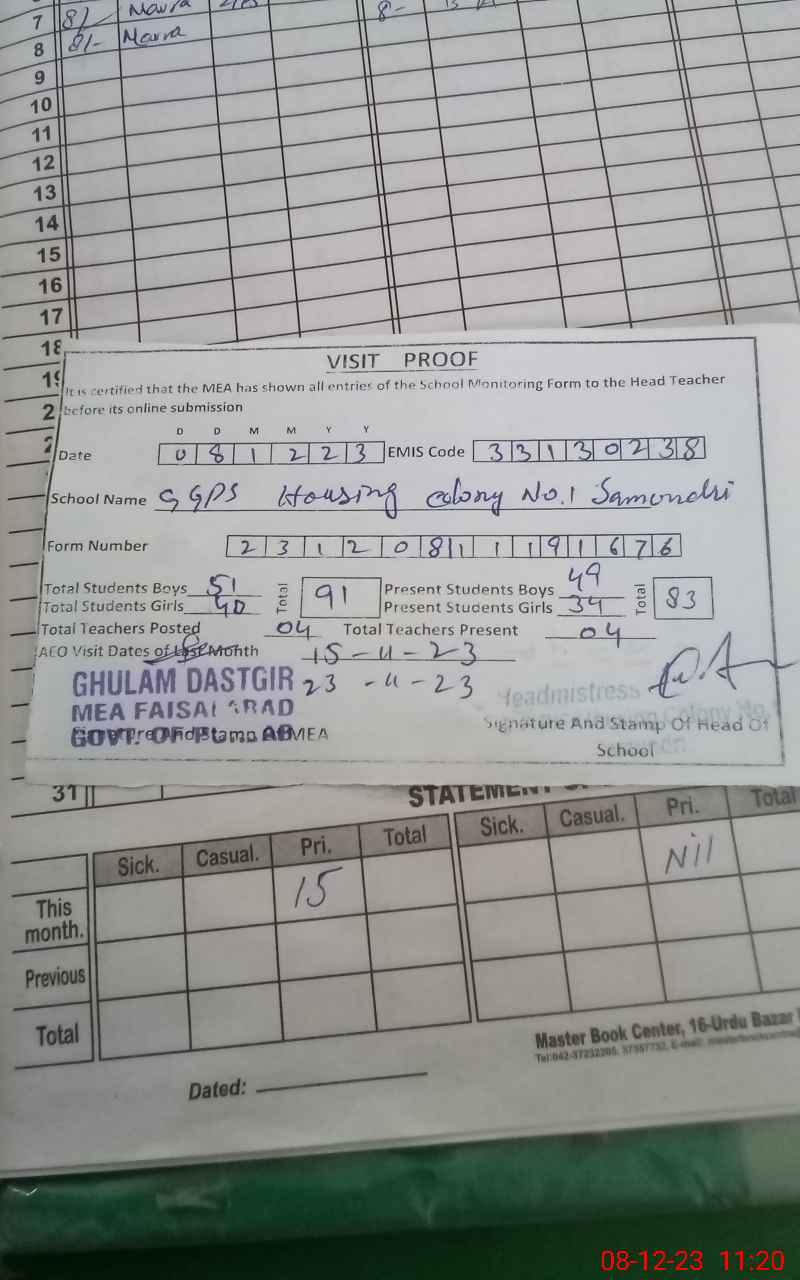 7 8/ Mavra 8-
8 8/- Mavra
9
10
11
12
13
14
15
16
17
18
VISIT PROOF
It is certified that the MEA has shown all entries of the School Monitoring Form to the Head Teacher
before its online submission
D D M M Y Y
Date 0 8 1 2 2 3 EMIS Code 3 3 1 3 0 2 3 8
School Name GGPS Housing colony No.1 Samundri
Form Number 2 3 1 2 0 8 1 1 1 9 1 6 7 6
Total Students Boys 51 Total 91 Present Students Boys 49 Total 83
Total Students Girls 40 Present Students Girls 34
Total Teachers Posted 04 Total Teachers Present 04
AEO Visit Dates of Last Month 15-11-23
23-11-23
GHULAM DASTGIR
MEA FAISALABAD
GOVT. OF PUNJAB
Signature And Stamp Of MEA
Headmistress
Signature And Stamp Of Head Of
School
31
STATEMENT
Sick. Casual. Pri. Total Sick. Casual. Pri. Total
This month. 15 Nil
Previous
Total
Master Book Center, 16-Urdu Bazar
Dated:
08-12-23 11:20